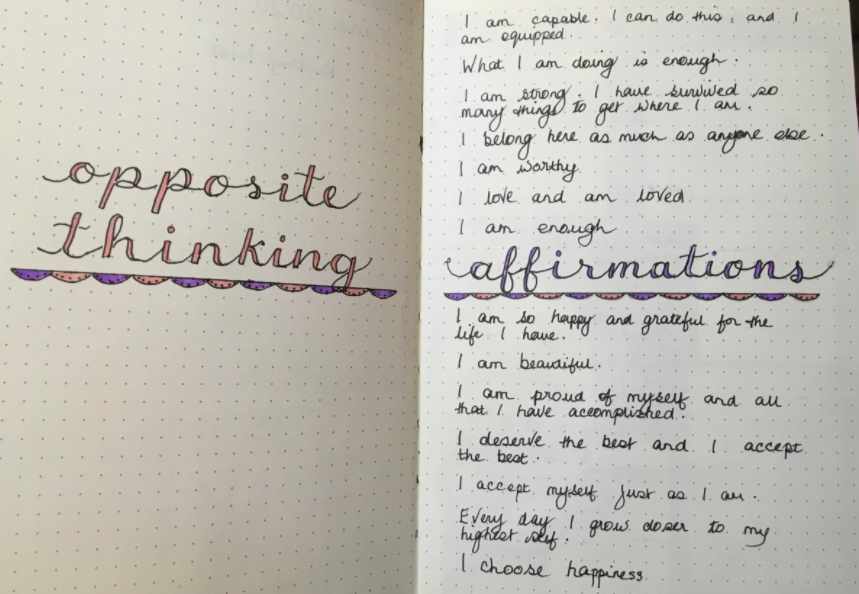 opposite
thinking
I am capable. I can do this, and I
am equipped.
What I am doing is enough.
I am strong. I have survived so
many things to get where I am.
I belong here as much as anyone else.
I am worthy
I love and am loved
I am enough
affirmations
I am so happy and grateful for the
life I have.
I am beautiful.
I am proud of myself and all
that I have accomplished.
I deserve the best and I accept
the best.
I accept myself just as I am.
Every day I grow closer to my
highest self.
I choose happiness